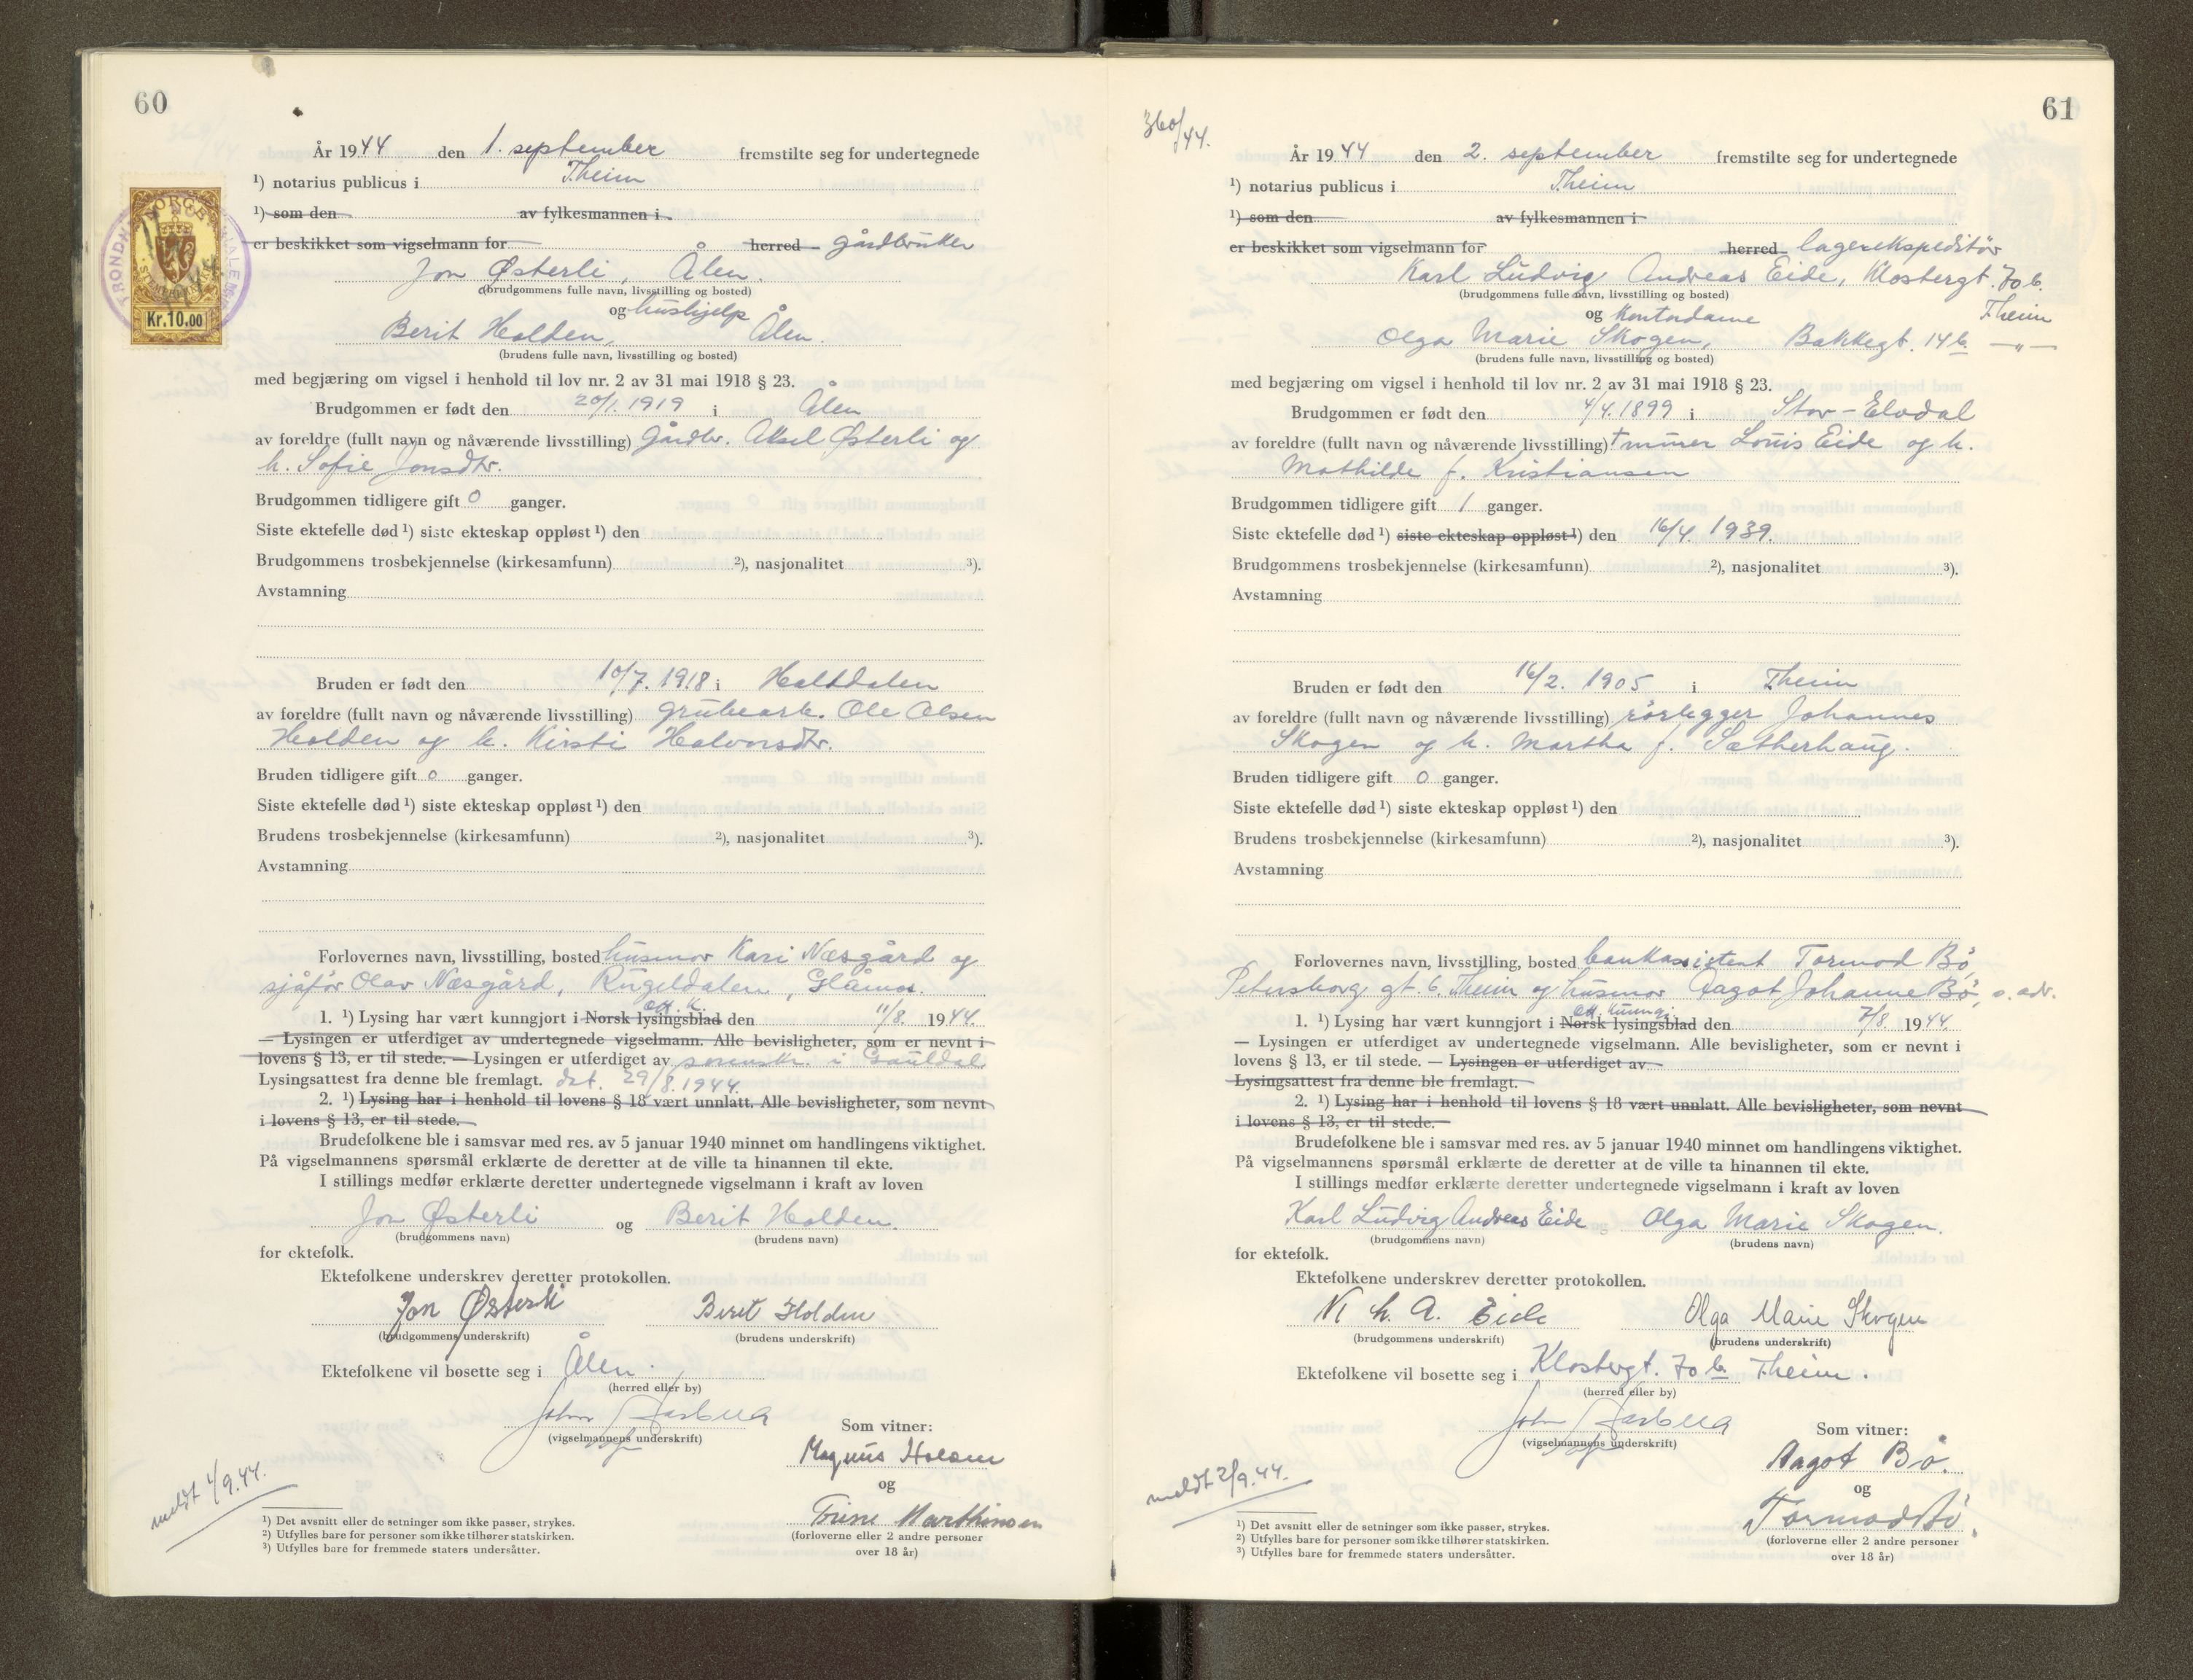 60
År 1944 den 1. september fremstilte seg for undertegnede
¹) notarius publicus i T.heim
¹) som den av fylkesmannen i
er beskikket som vigselmann for herred gårdbruker
Jon Østerli, Ålen.
(brudgommens fulle navn, livsstilling og bosted)
og hushjelp
Berit Holden, Ålen.
(brudens fulle navn, livsstilling og bosted)
med begjæring om vigsel i henhold til lov nr. 2 av 31 mai 1918 § 23.
Brudgommen er født den 20/1. 1919 i Ålen
av foreldre (fullt navn og nåværende livsstilling) gårdbr. Aksel Østerli og
h. Sofie Jonsdtr.
Brudgommen tidligere gift 0 ganger.
Siste ektefelle død ¹) siste ekteskap oppløst ¹) den
Brudgommens trosbekjennelse (kirkesamfunn) ²), nasjonalitet ³).
Avstamning
Bruden er født den 10/7. 1918 i Haltdalen
av foreldre (fullt navn og nåværende livsstilling) grubearb. Ole Olsen
Holden og h. Kirsti Halvorsdtr.
Bruden tidligere gift 0 ganger.
Siste ektefelle død ¹) siste ekteskap oppløst ¹) den
Brudens trosbekjennelse (kirkesamfunn) ²), nasjonalitet ³).
Avstamning
Forlovernes navn, livsstilling, bosted husmor Kari Næsgård og
sjåfør Olav Næsgård, Rugeldalen, Glåmos.
off. k.
1. ¹) Lysing har vært kunngjort i Norsk lysingsblad den 11/8. 1944.
— Lysingen er utferdiget av undertegnede vigselmann. Alle bevisligheter, som er nevnt i
lovens § 13, er til stede. — Lysingen er utferdiget av sorenskr. i Gauldal
Lysingsattest fra denne ble fremlagt. dat. 29/8. 1944.
2. ¹) Lysing har i henhold til lovens § 18 vært unnlatt. Alle bevisligheter, som nevnt
i lovens § 13, er til stede.
Brudefolkene ble i samsvar med res. av 5 januar 1940 minnet om handlingens viktighet.
På vigselmannens spørsmål erklærte de deretter at de ville ta hinannen til ekte.
I stillings medfør erklærte deretter undertegnede vigselmann i kraft av loven
Jon Østerli og Berit Holden.
(brudgommens navn) (brudens navn)
for ektefolk.
Ektefolkene underskrev deretter protokollen.
Jon Østerli Berit Holden
(brudgommens underskrift) (brudens underskrift)
Ektefolkene vil bosette seg i Ålen.
(herred eller by)
John Aasbua
(vigselmannens underskrift)
Som vitner:
Magnus Holden
og
Trine Marthinsen
(forloverne eller 2 andre personer
over 18 år)
meldt 4/9.44.
¹) Det avsnitt eller de setninger som ikke passer, strykes.
²) Utfylles bare for personer som ikke tilhører statskirken.
³) Utfylles bare for fremmede staters undersåtter.
NORGE
Kr.10.00
61
360/44.
År 1944 den 2. september fremstilte seg for undertegnede
¹) notarius publicus i T.heim
¹) som den av fylkesmannen i
er beskikket som vigselmann for herred lagerekspeditör
Karl Ludvig Andreas Eide, Klostergt. 70 b.
(brudgommens fulle navn, livsstilling og bosted) T.heim
og kontordame
Olga Marie Skogen, Bakkegt. 14 b. —"—
(brudens fulle navn, livsstilling og bosted)
med begjæring om vigsel i henhold til lov nr. 2 av 31 mai 1918 § 23.
Brudgommen er født den 4/4. 1899 i Stor-Elvdal
av foreldre (fullt navn og nåværende livsstilling) † murer Louis Eide og h.
Mathilde f. Kristiansen
Brudgommen tidligere gift 1 ganger.
Siste ektefelle død ¹) siste ekteskap oppløst ¹) den 16/4 1939.
Brudgommens trosbekjennelse (kirkesamfunn) ²), nasjonalitet ³).
Avstamning
Bruden er født den 16/2. 1905 i T.heim
av foreldre (fullt navn og nåværende livsstilling) rörlegger Johannes
Skogen og h. Martha f. Sætherhaug.
Bruden tidligere gift 0 ganger.
Siste ektefelle død ¹) siste ekteskap oppløst ¹) den
Brudens trosbekjennelse (kirkesamfunn) ²), nasjonalitet ³).
Avstamning
Forlovernes navn, livsstilling, bosted bankassistent Tormod Bö,
Petersborg gt. 6. T.heim og husmor Aagot Johanne Bö, s. adr.
off. kunngj.
1. ¹) Lysing har vært kunngjort i Norsk lysingsblad den 7/8. 1944.
— Lysingen er utferdiget av undertegnede vigselmann. Alle bevisligheter, som er nevnt i
lovens § 13, er til stede. — Lysingen er utferdiget av
Lysingsattest fra denne ble fremlagt.
2. ¹) Lysing har i henhold til lovens § 18 vært unnlatt. Alle bevisligheter, som nevnt
i lovens § 13, er til stede.
Brudefolkene ble i samsvar med res. av 5 januar 1940 minnet om handlingens viktighet.
På vigselmannens spørsmål erklærte de deretter at de ville ta hinannen til ekte.
I stillings medfør erklærte deretter undertegnede vigselmann i kraft av loven
Karl Ludvig Andreas Eide og Olga Marie Skogen.
(brudgommens navn) (brudens navn)
for ektefolk.
Ektefolkene underskrev deretter protokollen.
A. Eide Olga Marie Skogen
(brudgommens underskrift) (brudens underskrift)
Ektefolkene vil bosette seg i Klostergt. 70 b. T.heim.
(herred eller by)
John Aasbua
(vigselmannens underskrift)
Som vitner:
Aagot Bö.
og
Tormod Bö.
(forloverne eller 2 andre personer
over 18 år)
meldt 2/9.44.
¹) Det avsnitt eller de setninger som ikke passer, strykes.
²) Utfylles bare for personer som ikke tilhører statskirken.
³) Utfylles bare for fremmede staters undersåtter.